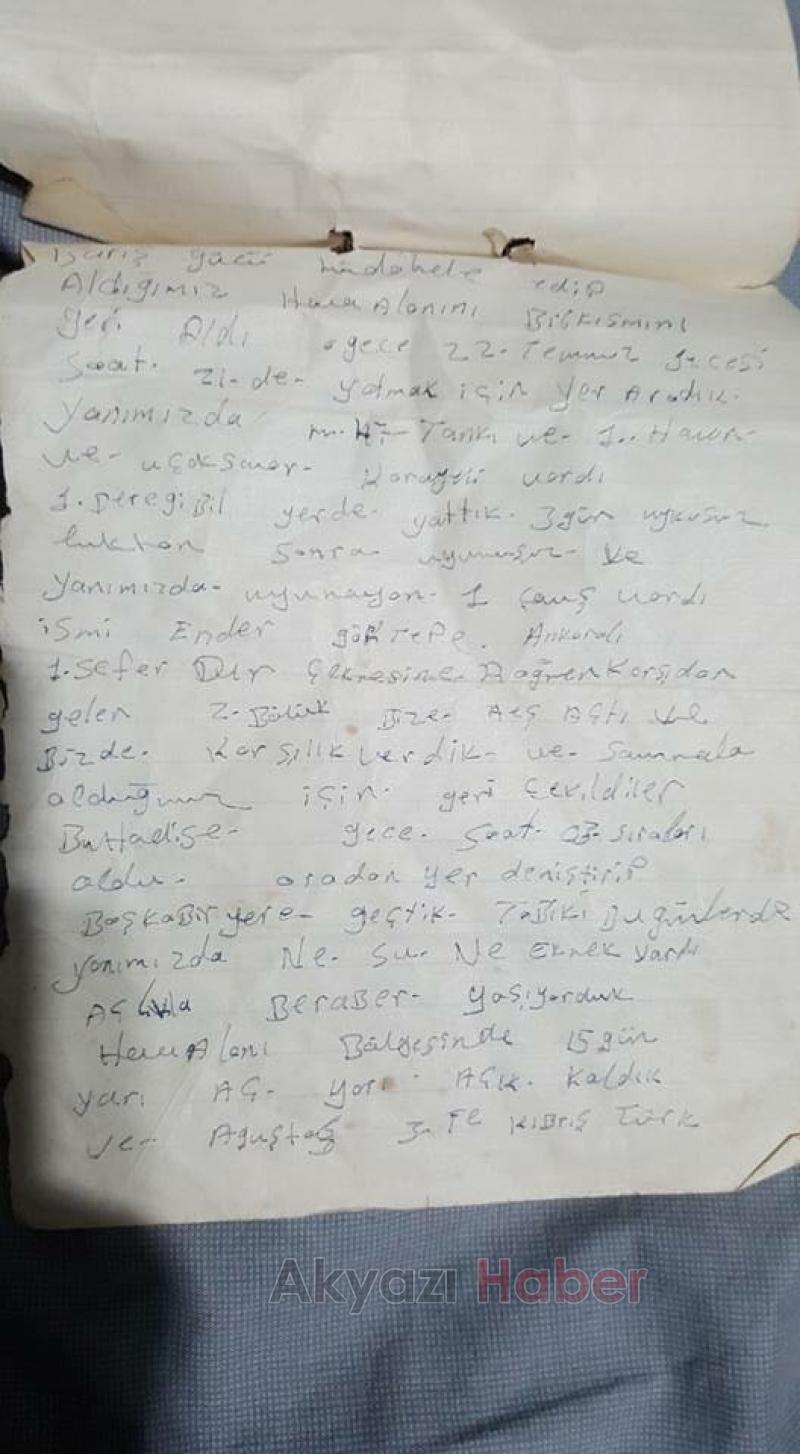 Barış gücü müdahele edip
Aldığımız Hava Alanını Birkısmını
geri Aldı ogece 22. Temmuz gecesi
Saat. 21-de- yatmak için Yer Aradık.
Yanımızda m.47- Tankı ve- 1.. Havan-
ve- uçaksavar- vardı
1. yerde- yattık- 3 gün uykusuz
luktan sonra- uyumuşuz- ve
Yanımızda- uyumayan- 1 çavuş vardı
ismi Ender göktepe. Ankaralı
1. Sefer Dur Rağmen Karşıdan
gelen 2- Bölük Bize- Ateş Açtı ve
Bizde- Karşılık verdik- ve-
olduğumuz için- geri Çekildiler
BuHadise- gece- Saat- 03- sıraları
oldu- oradan yer deniştirip
BaşkaBir yere- geçtik- Tabiki Bugünlerde
yanımızda Ne- Su- Ne Ekmek vardı
Açlıkla BERABER- yaşıyorduk
Hava Alanı Bölgesinde 15 gün
yarı Aç- yarı Açık- kaldık
ve- Ağustos 3-te Kıbrıs Türk
Akyazı Haber